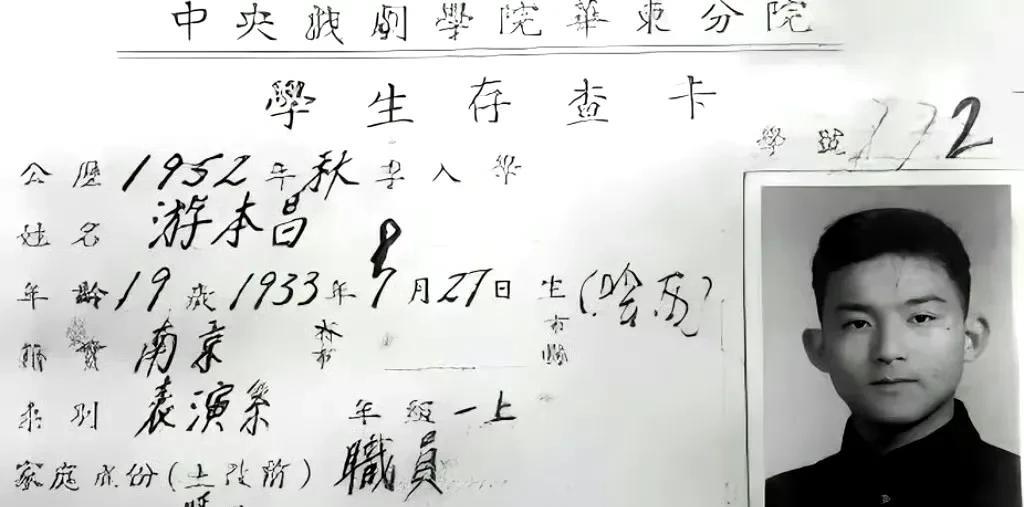 中央戏劇學院華東分院
學生存查卡
學號 172
公歷1952年秋季入學
姓名 游本昌
年齡19歲1933年9月27日生(陰历)
籍貫 南京 市 市縣
系別 表演系 年級 一上
家庭成份(土改前) 職員